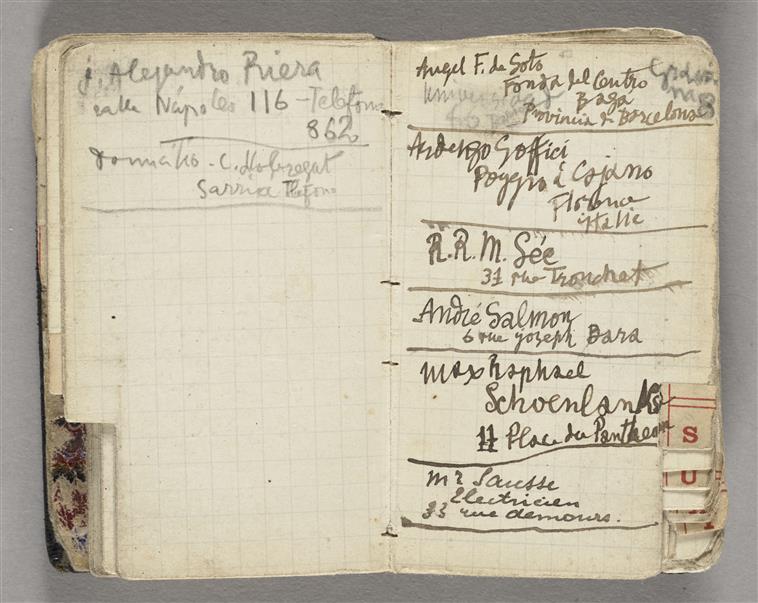 j, Alejandro Riera
calle Nápoles 116 - Telefono
862
C. Llobregat
Sarria Telefono
Angel F. de Soto
Fonda del Centro
Baga
Provincia de Barcelona
Ardengo Soffici
Poggio à Cajano
Florence
italie
R. R. M. Sée
31 rue Tronchet
André Salmon
6 rue joseph Bara
Max Raphael
Schoenlank
11 Place du Pantheon
mr Sausse
Electricien
33 rue demours.
S
U